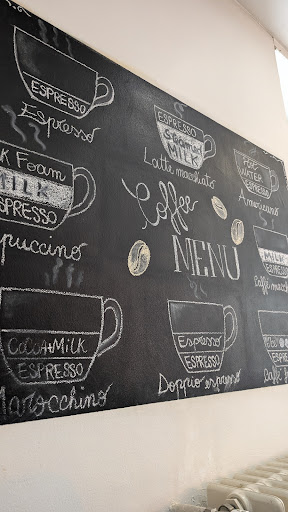 ESPRESSO
Espresso
ESPRESSO
STEAMED
MILK
Latte macchiato
HOT
WATER
ESPRESSO
Americano
K FOAM
MILK
SPRESSO
ppuccino
Coffee
MENU
MILK
ESPRESSO
Caffè macch
COCOA+MILK
ESPRESSO
Marocchino
Espresso
ESPRESSO
Doppio espresso
ESPRESSO
Caffè